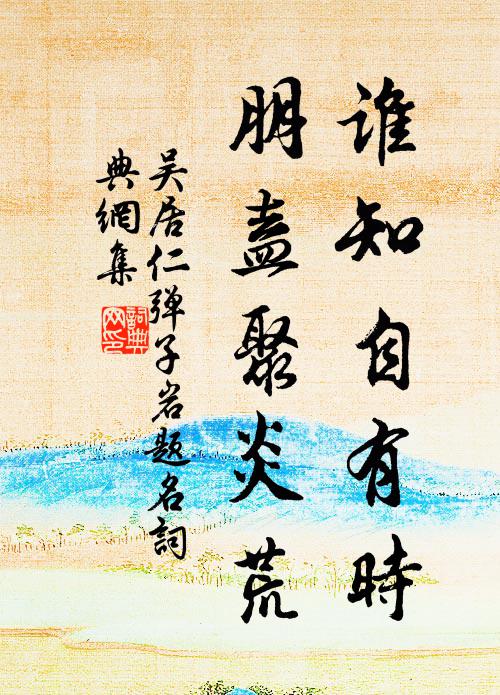 谁知自有時
朋盍聚炎荒
吴居仁弹子岩题名詞
典網集
詞典
网印